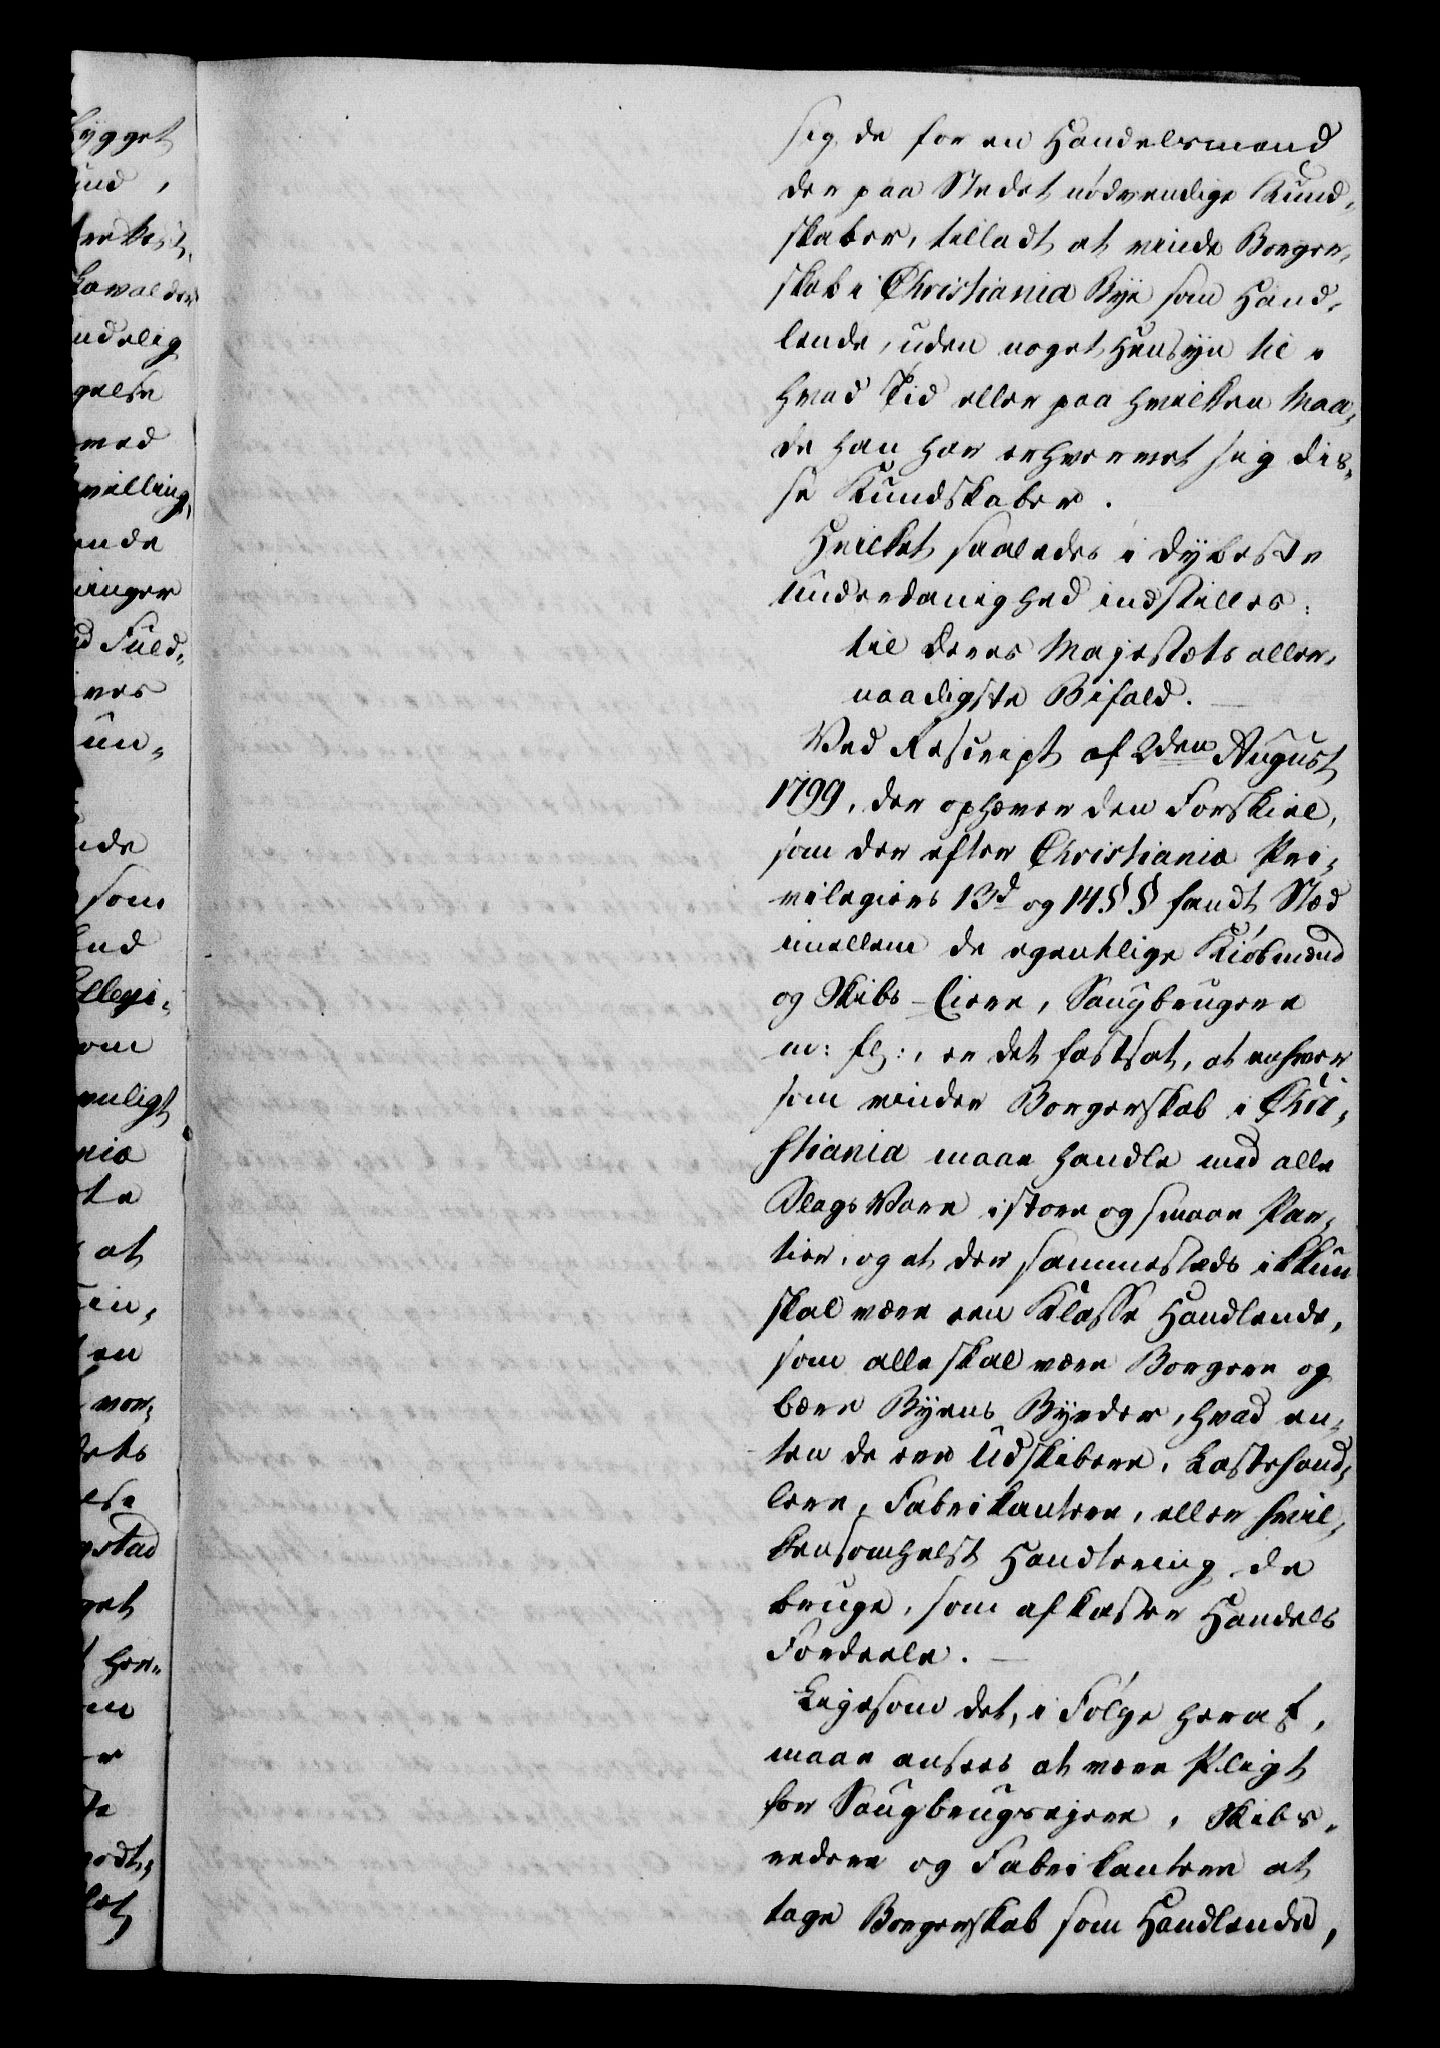 sig de for en Handelsmand
der paa Stedet nødvendige Kund-
skaber, tilladt at vinde Borger-
skab i Christiania Bye som Hand-
lende, uden noget Hensyn til i
hvad Tid eller paa hvilken Maa-
de han har erhvervet sig dis-
se Kundskaber.
Hvilket saaledes i dybeste
Underdanighed indstilles:
til Deres Majestæts aller-
naadigste Bifald.
Ved Rescript af 2den August
1799, der ophæver den Forskiel,
som der efter Christiania Pri-
vilegiers 13d og 14 § § fandt Stæd
imellem de egentlige Kiøbmænd
og Skibs-Eiere, Saugbrugere
m: fl:, er det fastsat, at enhver
som vinder Borgerskab i Chri-
stiania maae handle med alle
Slags Vare i store og smaae Par-
tier, og at der sammestæds ikkun
skal være een Klasse Handlende,
som alle skal være Borgere og
bære Byens Byrder, hvad en-
ten de ere Udskibere, Lastehand-
lere, Fabrikantere, eller hvil-
kensomhelst Handtering de
bruge, som afkaster Handels
Fordeele.
Ligesom det, i Følge heraf,
maae ansees at være Pligt
for Saugbrugsejere, Skibs-
redere og Fabrikantere at
tage Borgerskab som Handlende,